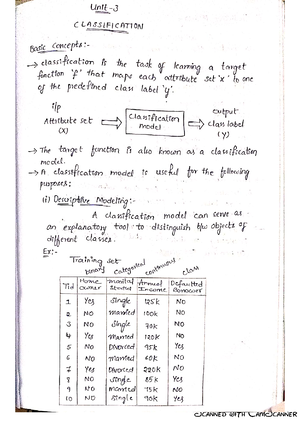 Unit-3
CLASSIFICATION
Basic Concepts:-
→ classification is the task of learning a target
function 'f' that maps each attribute set 'x' in one
of the predefined class label 'y'.
i/p output
Attribute set → Classification model → class label
(X) (Y)
→ The target function is also known as a classification
model.
→ A classification model is useful for the following
purposes:
(i) Descriptive Modeling:-
A classification model can serve as
an explanatory tool to distinguish b/w objects of
different classes.
Ex:-
Training set
binary categorical continuous class
Tid Home owner Marital Status Annual Income Defaulted
1 Yes Single 125k NO
2 NO married 100k NO
3 NO Single 70k NO
4 Yes married 120k NO
5 NO Divorced 95k Yes
6 NO married 60k NO
7 Yes Divorced 220k NO
8 NO Single 85k Yes
9 NO married 75k NO
10 NO Single 90k Yes
SCANNED WITH CAMSCANNER